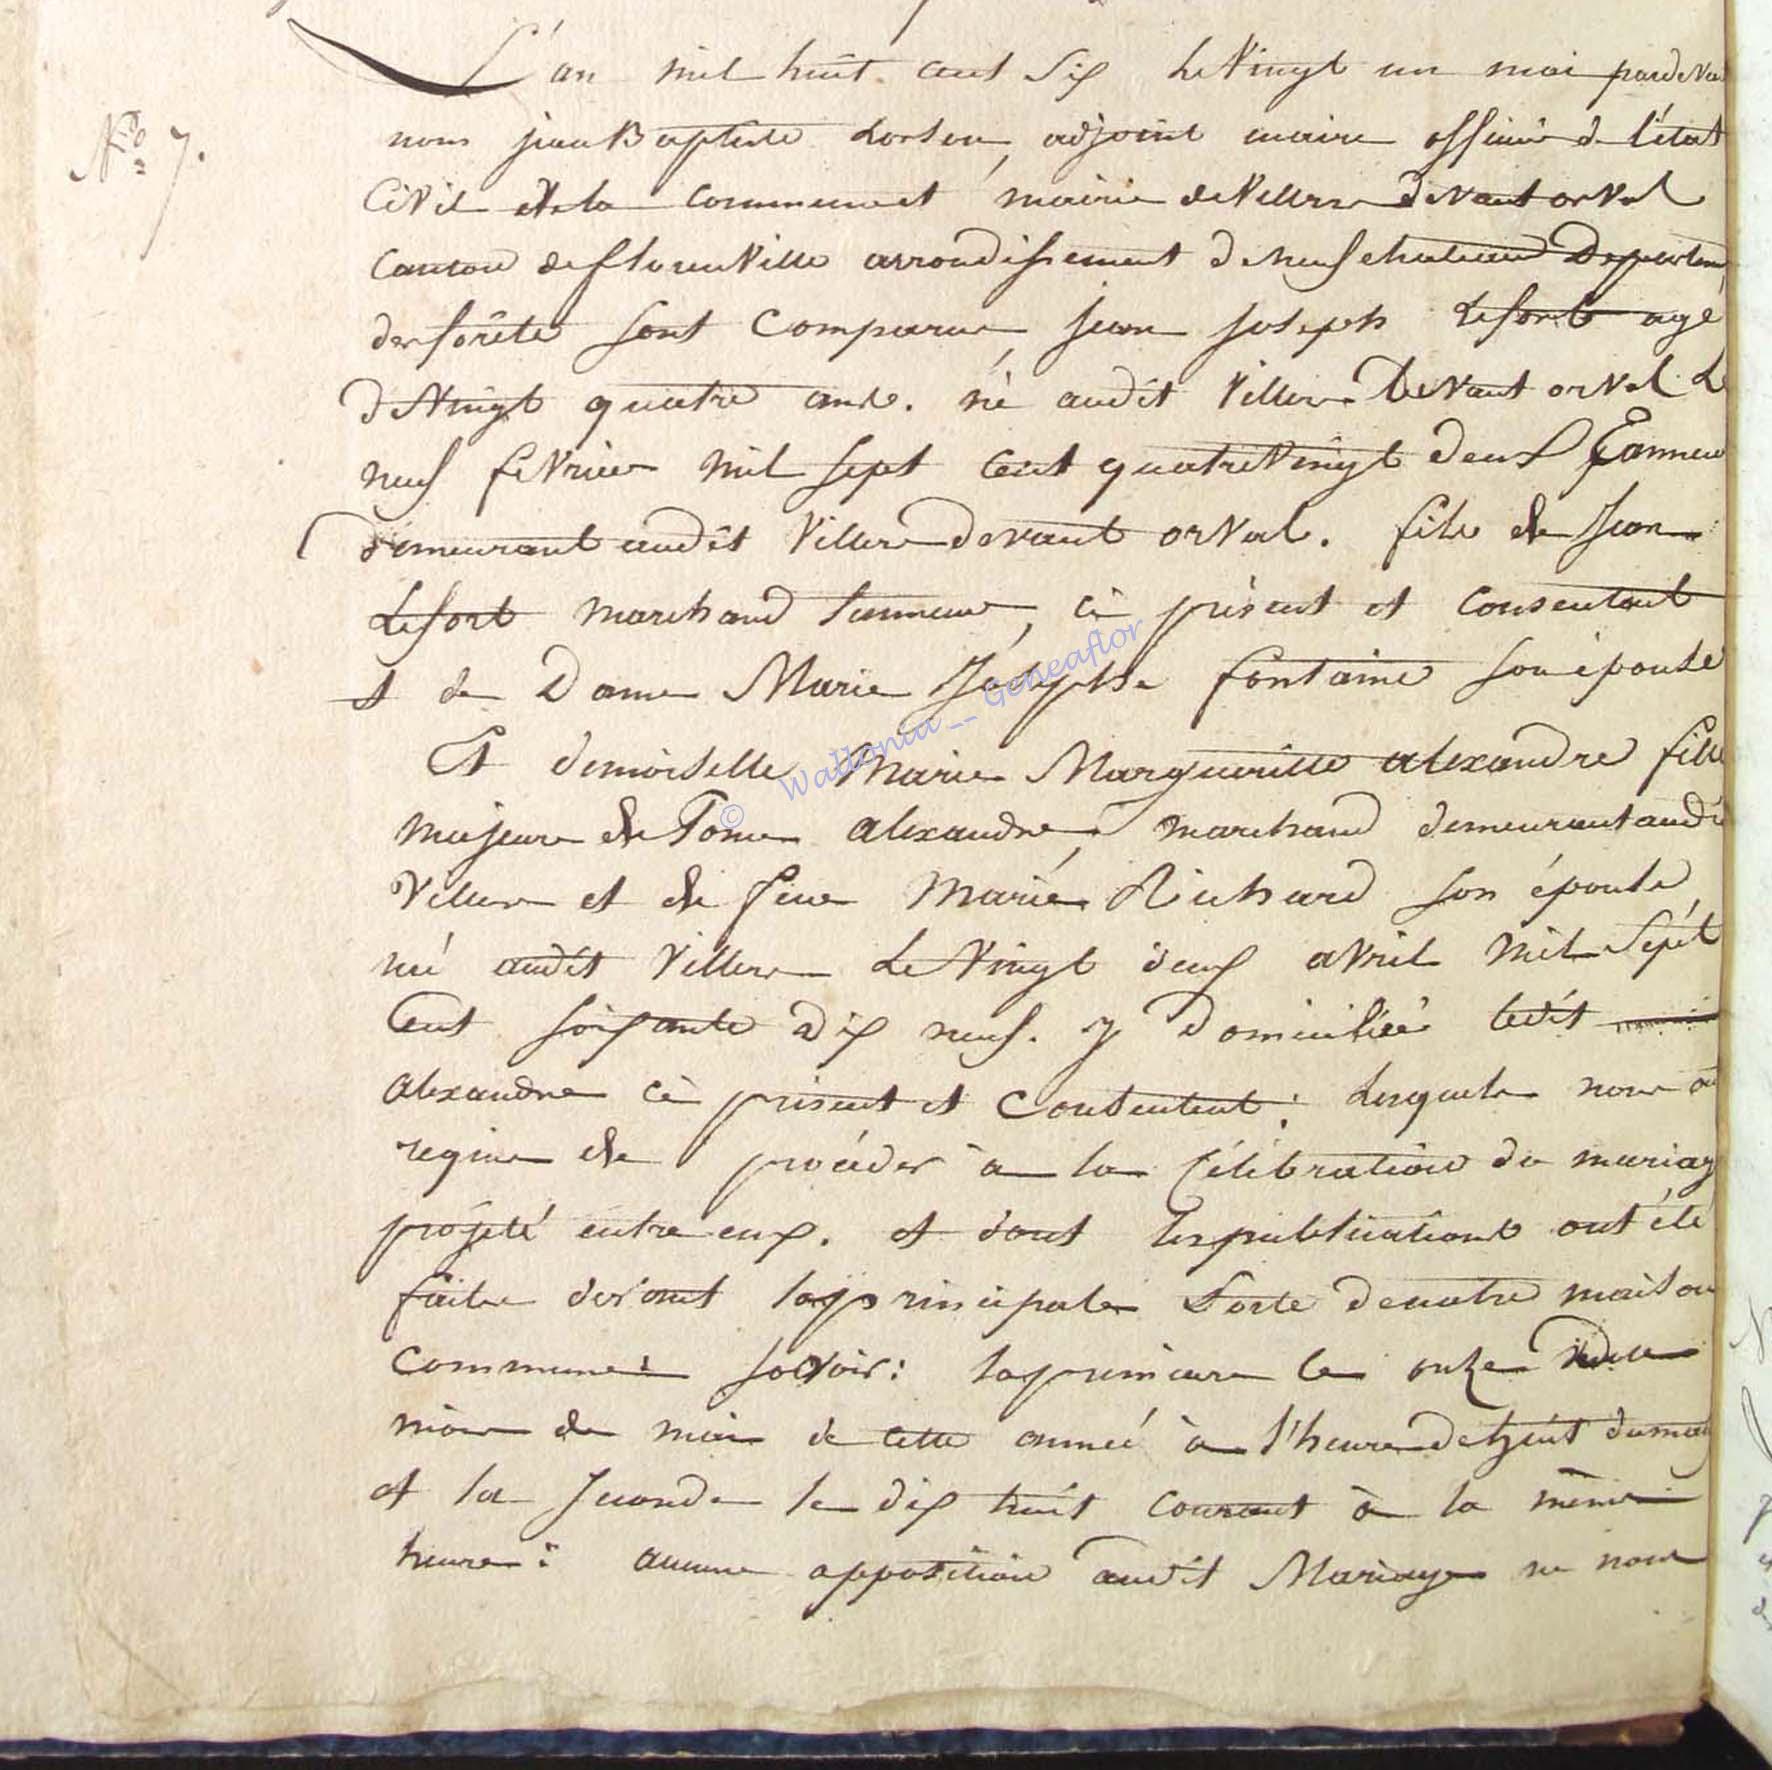 L'an mil huit cent Six Le Vingt un mai pardeva
N.° 7.
nous jean Baptiste adjoint maire officier de l'état
Civil de la commune et mairie de Villers devant orval
Canton de florenville arrondissement de neufchateau Departem
des forêts sont comparus jean joseph Lefort agé
de Vingt quatre ans. né audit Villers Devant orval Le
neuf fevrier mil sept cent quatre Vingt deux Tanneur
demeurant audit Villers devant orval. fils de Jean
Lefort marchand tanneur, ci présent et consentant
et de Dame Marie Josephe fontaine son épouse
Et demoiselle Marie Margueritte alexandre fille
majeure de Tome alexandre, marchand demeurant audit
Villers et de feue Marie Richard son épouse,
né audit Villers Le Vingt deux avril mil Sept
Cent soixante Dix neuf. y domiciliée ledit
alexandre ci présent et Consentent: Lesquels nous on
requis de procéder à la Célébration du mariag
projeté entre eux. et dont les publications ont été
faites devant la principale Porte de notre maison
commune: savoir: la premiere le onze du
mois de mai de cette année à l'heure de huit du mat
et la seconde le dix huit courant à la même
heure: aucune opposition audit Mariage ne nous
© Wallonia__Geneaflor